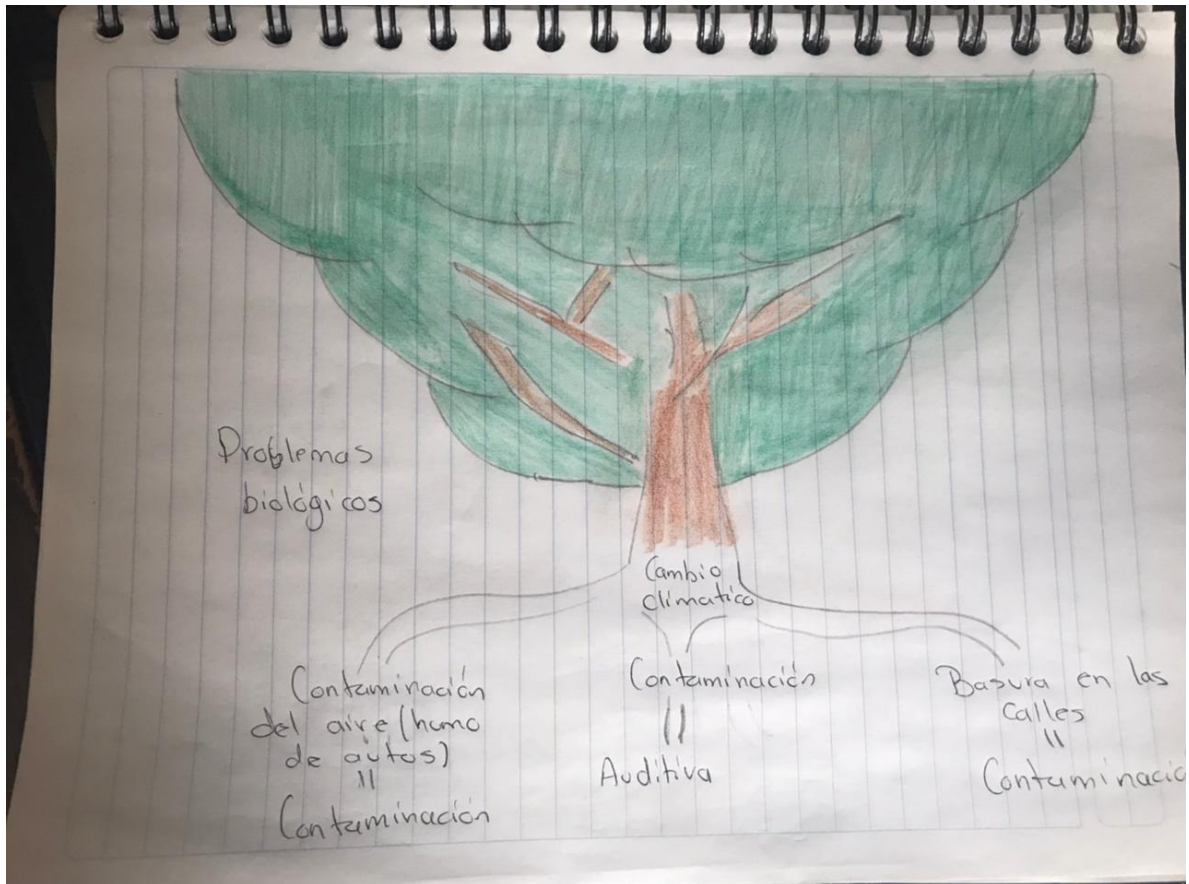 Problemas
biológicos
Cambio
climatico
Contaminación
del aire (humo
de autos)
=
Contaminación
Contaminación
||
Auditiva
Basura en las
Calles
=
Contaminació